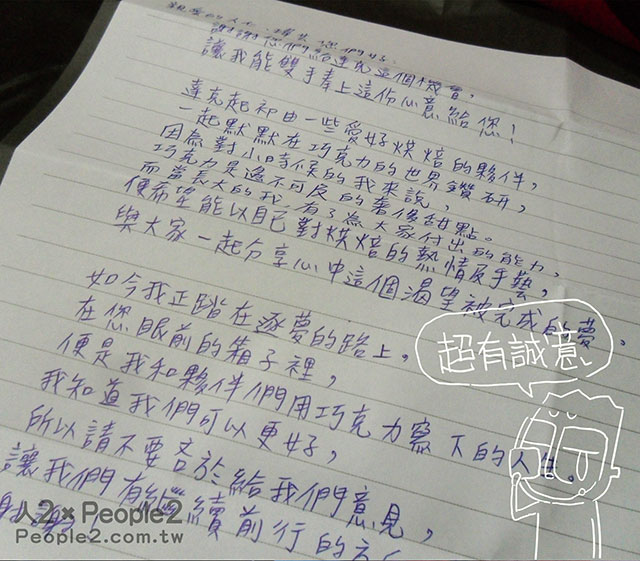 謝謝您們給達克這個機會，
讓我能雙手奉上這份心意給您！
達克起初由一些愛好烘焙的夥伴，
一起默默在巧克力的世界鑽研，
因為對小時候的我來說，
巧克力是遙不可及的奢侈甜點。
而當長大的我，有了為大家付出的能力，
便希望能以自己對烘焙的熱情及手藝，
與大家一起分享心中這個渴望被完成的夢。
如今我正踏在逐夢的路上。
在您眼前的箱子裡，
便是我和夥伴們用巧克力寫下的人生。
我知道我們可以更好，
所以請不要吝於給我們意見，
讓我們有繼續前行的
超有誠意
人2×People2
People2.com.tw